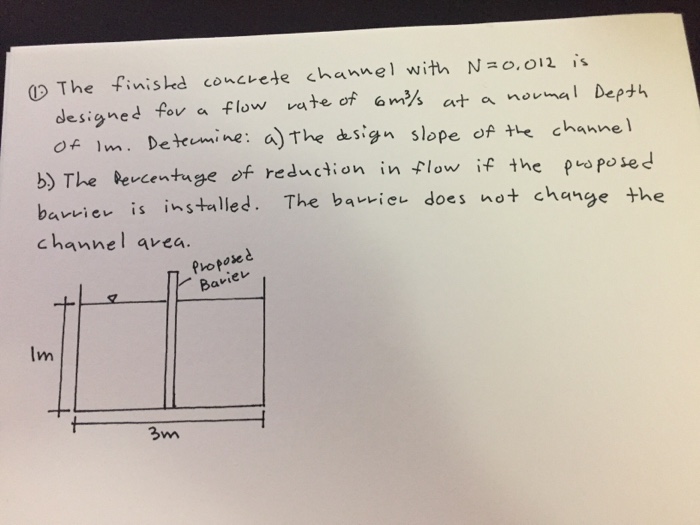 13 The finished concrete channel with N=0.012 is
designed for a flow rate of 6m³/s at a normal Depth
of 1m. Determine: a) The design slope of the channel
b.) The Percentage of reduction in flow if the proposed
barrier is installed. The barrier does not change the
channel area.
Proposed
Barier
1m
3m